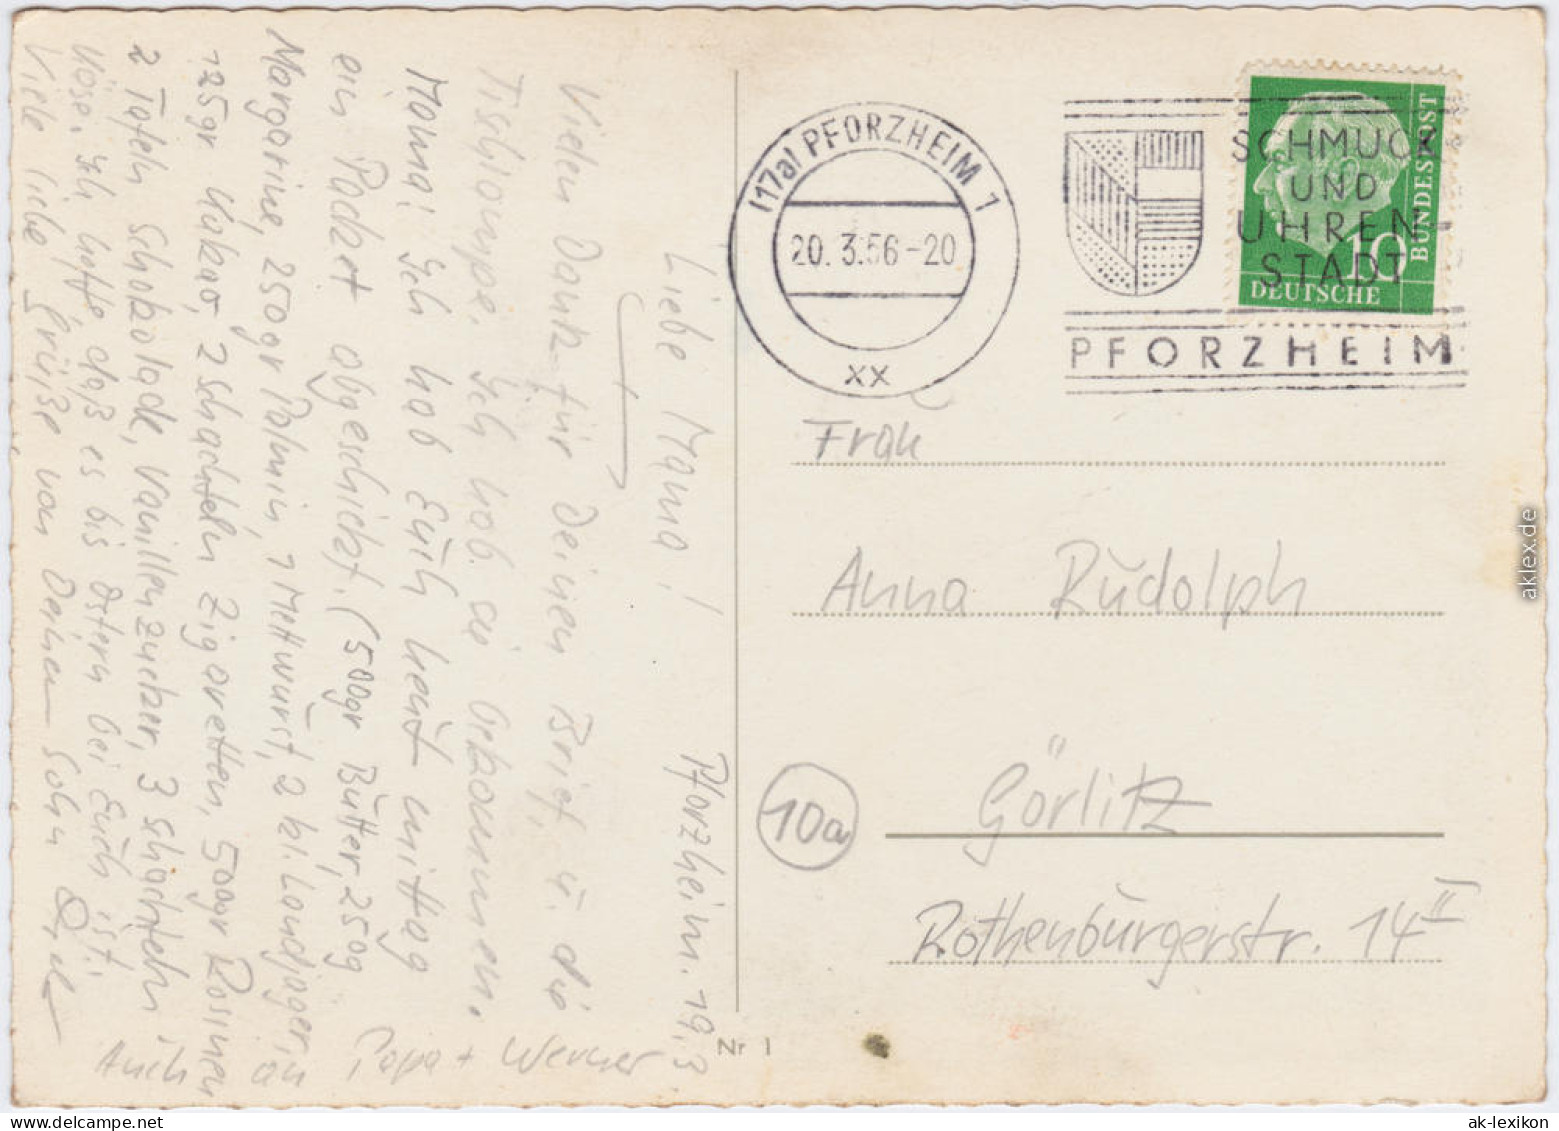 Pforzheim. 19.3
Liebe Mama!
Vielen Dank für Deinen Brief, u. die
Tischlampe. Ich hab sie bekommen.
Mama! Ich hab Euch heut mittag
ein Packet abgeschickt. (500gr Butter, 250g
Margarine, 250gr Palmin, 1 Mettwurst, 2 kl. Landjäger,
125gr Kakao, 2 Schachteln Zigaretten, 500gr Rosinen
2 Tafeln Schokolade, Vanillenzucker, 3 Schachteln
Käse. Ich hoffe, daß es bis Ostern bei Euch ist.
Viele liebe Grüße von Deinem Sohn
Auch an Papa + Werner
(17a) PFORZHEIM 1
20. 3.56-20
xx
SCHMUCK
UND
UHREN-
STADT
PFORZHEIM
DEUTSCHE
BUNDESPOST
10
Frau
Anna Rudolph
10a
Görlitz
Rothenburgerstr. 14 II
Nr 1
aklex.de
ak-lexikon